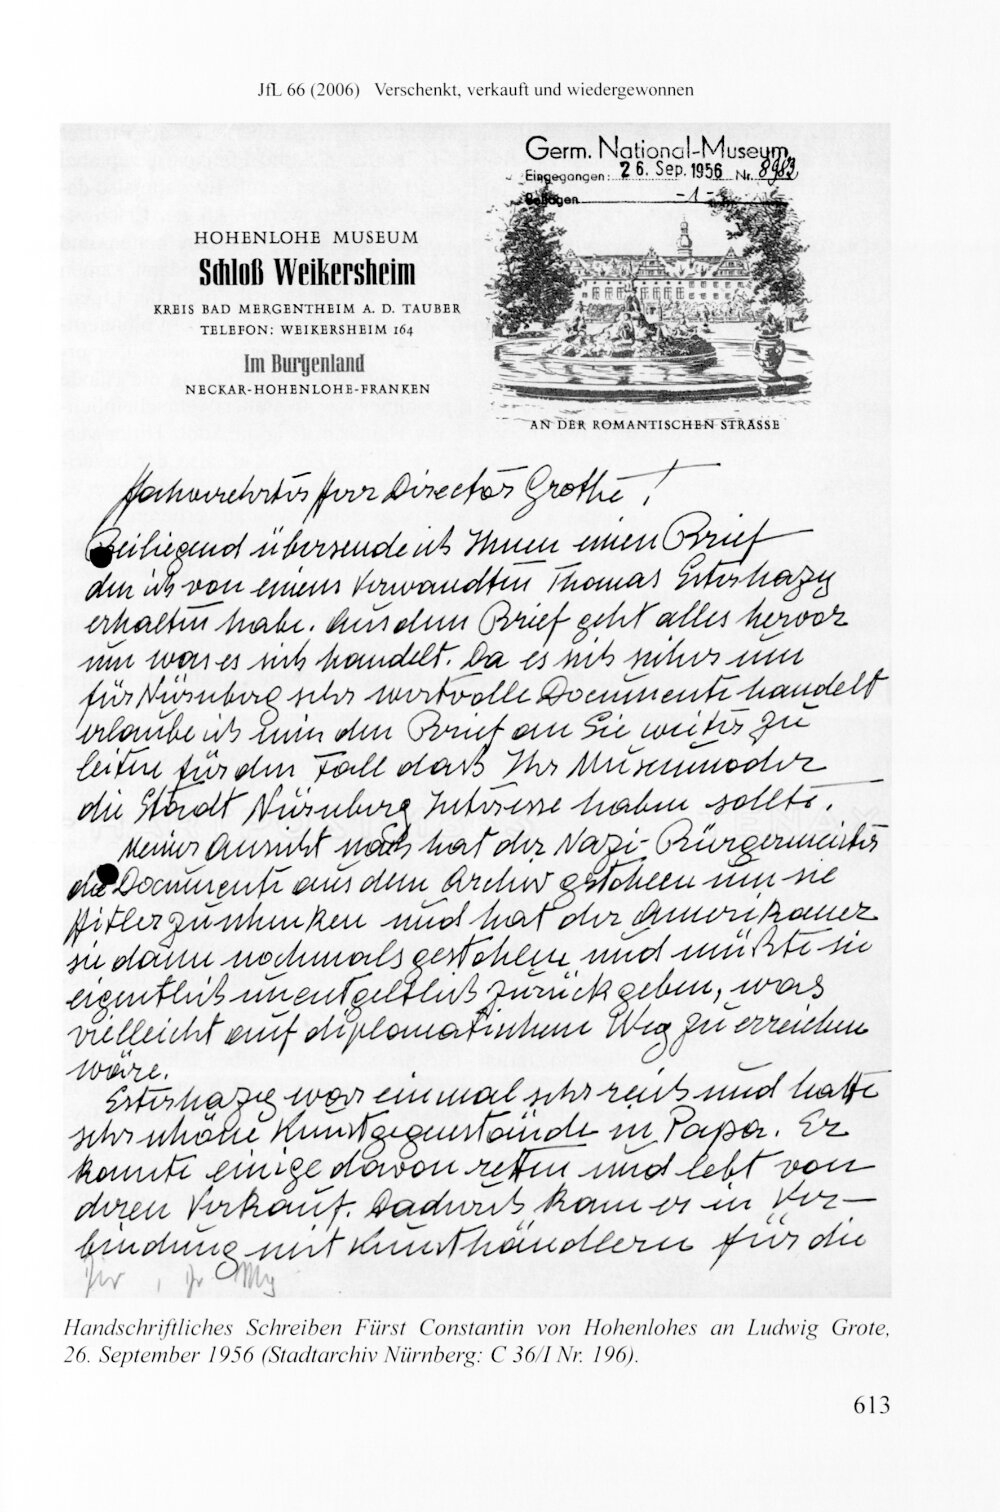 JfL 66 (2006) Verschenkt, verkauft und wiedergewonnen
Germ. National-Museum
Eingegangen: 26. Sep. 1956 Nr. 8983
Beilagen -1-
HOHENLOHE MUSEUM
Schloß Weikersheim
KREIS BAD MERGENTHEIM A. D. TAUBER
TELEFON: WEIKERSHEIM 164
Im Burgenland
NECKAR-HOHENLOHE-FRANKEN
AN DER ROMANTISCHEN STRASSE
Hochverehrter Herr Director Grothe!
Beiliegend übersende ich Ihnen einen Brief
den ich von einem Verwandten Thomas Esterhazy
erhalten habe. Aus dem Brief geht alles hervor
um was es sich handelt. Da es sich sicher um
für Nürnberg sehr wertvolle Documente handelt
erlaube ich mir den Brief an Sie weiter zu
leiten für den Fall dass Ihr Museum oder
die Stadt Nürnberg Interesse haben sollte.
Meiner Ansicht nach hat der Nazi-Bürgermeister
die Documente aus dem Archiv gestohlen um sie
Hitler zu schenken und hat der Amerikaner
sie dann nochmals gestohlen und müßte sie
eigentlich unentgeltlich zurück geben, was
vielleicht auf diplomatischem Weg zu erreichen
wäre.
Esterhazy war einmal sehr reich und hatte
sehr schöne Kunstgegenstände in Papa. Er
konnte einige davon retten und lebt von
deren Verkauf. Dadurch kam er in Ver-
bindung mit Kunsthändlern für die
Handschriftliches Schreiben Fürst Constantin von Hohenlohes an Ludwig Grote,
26. September 1956 (Stadtarchiv Nürnberg: C 36/I Nr. 196).
613